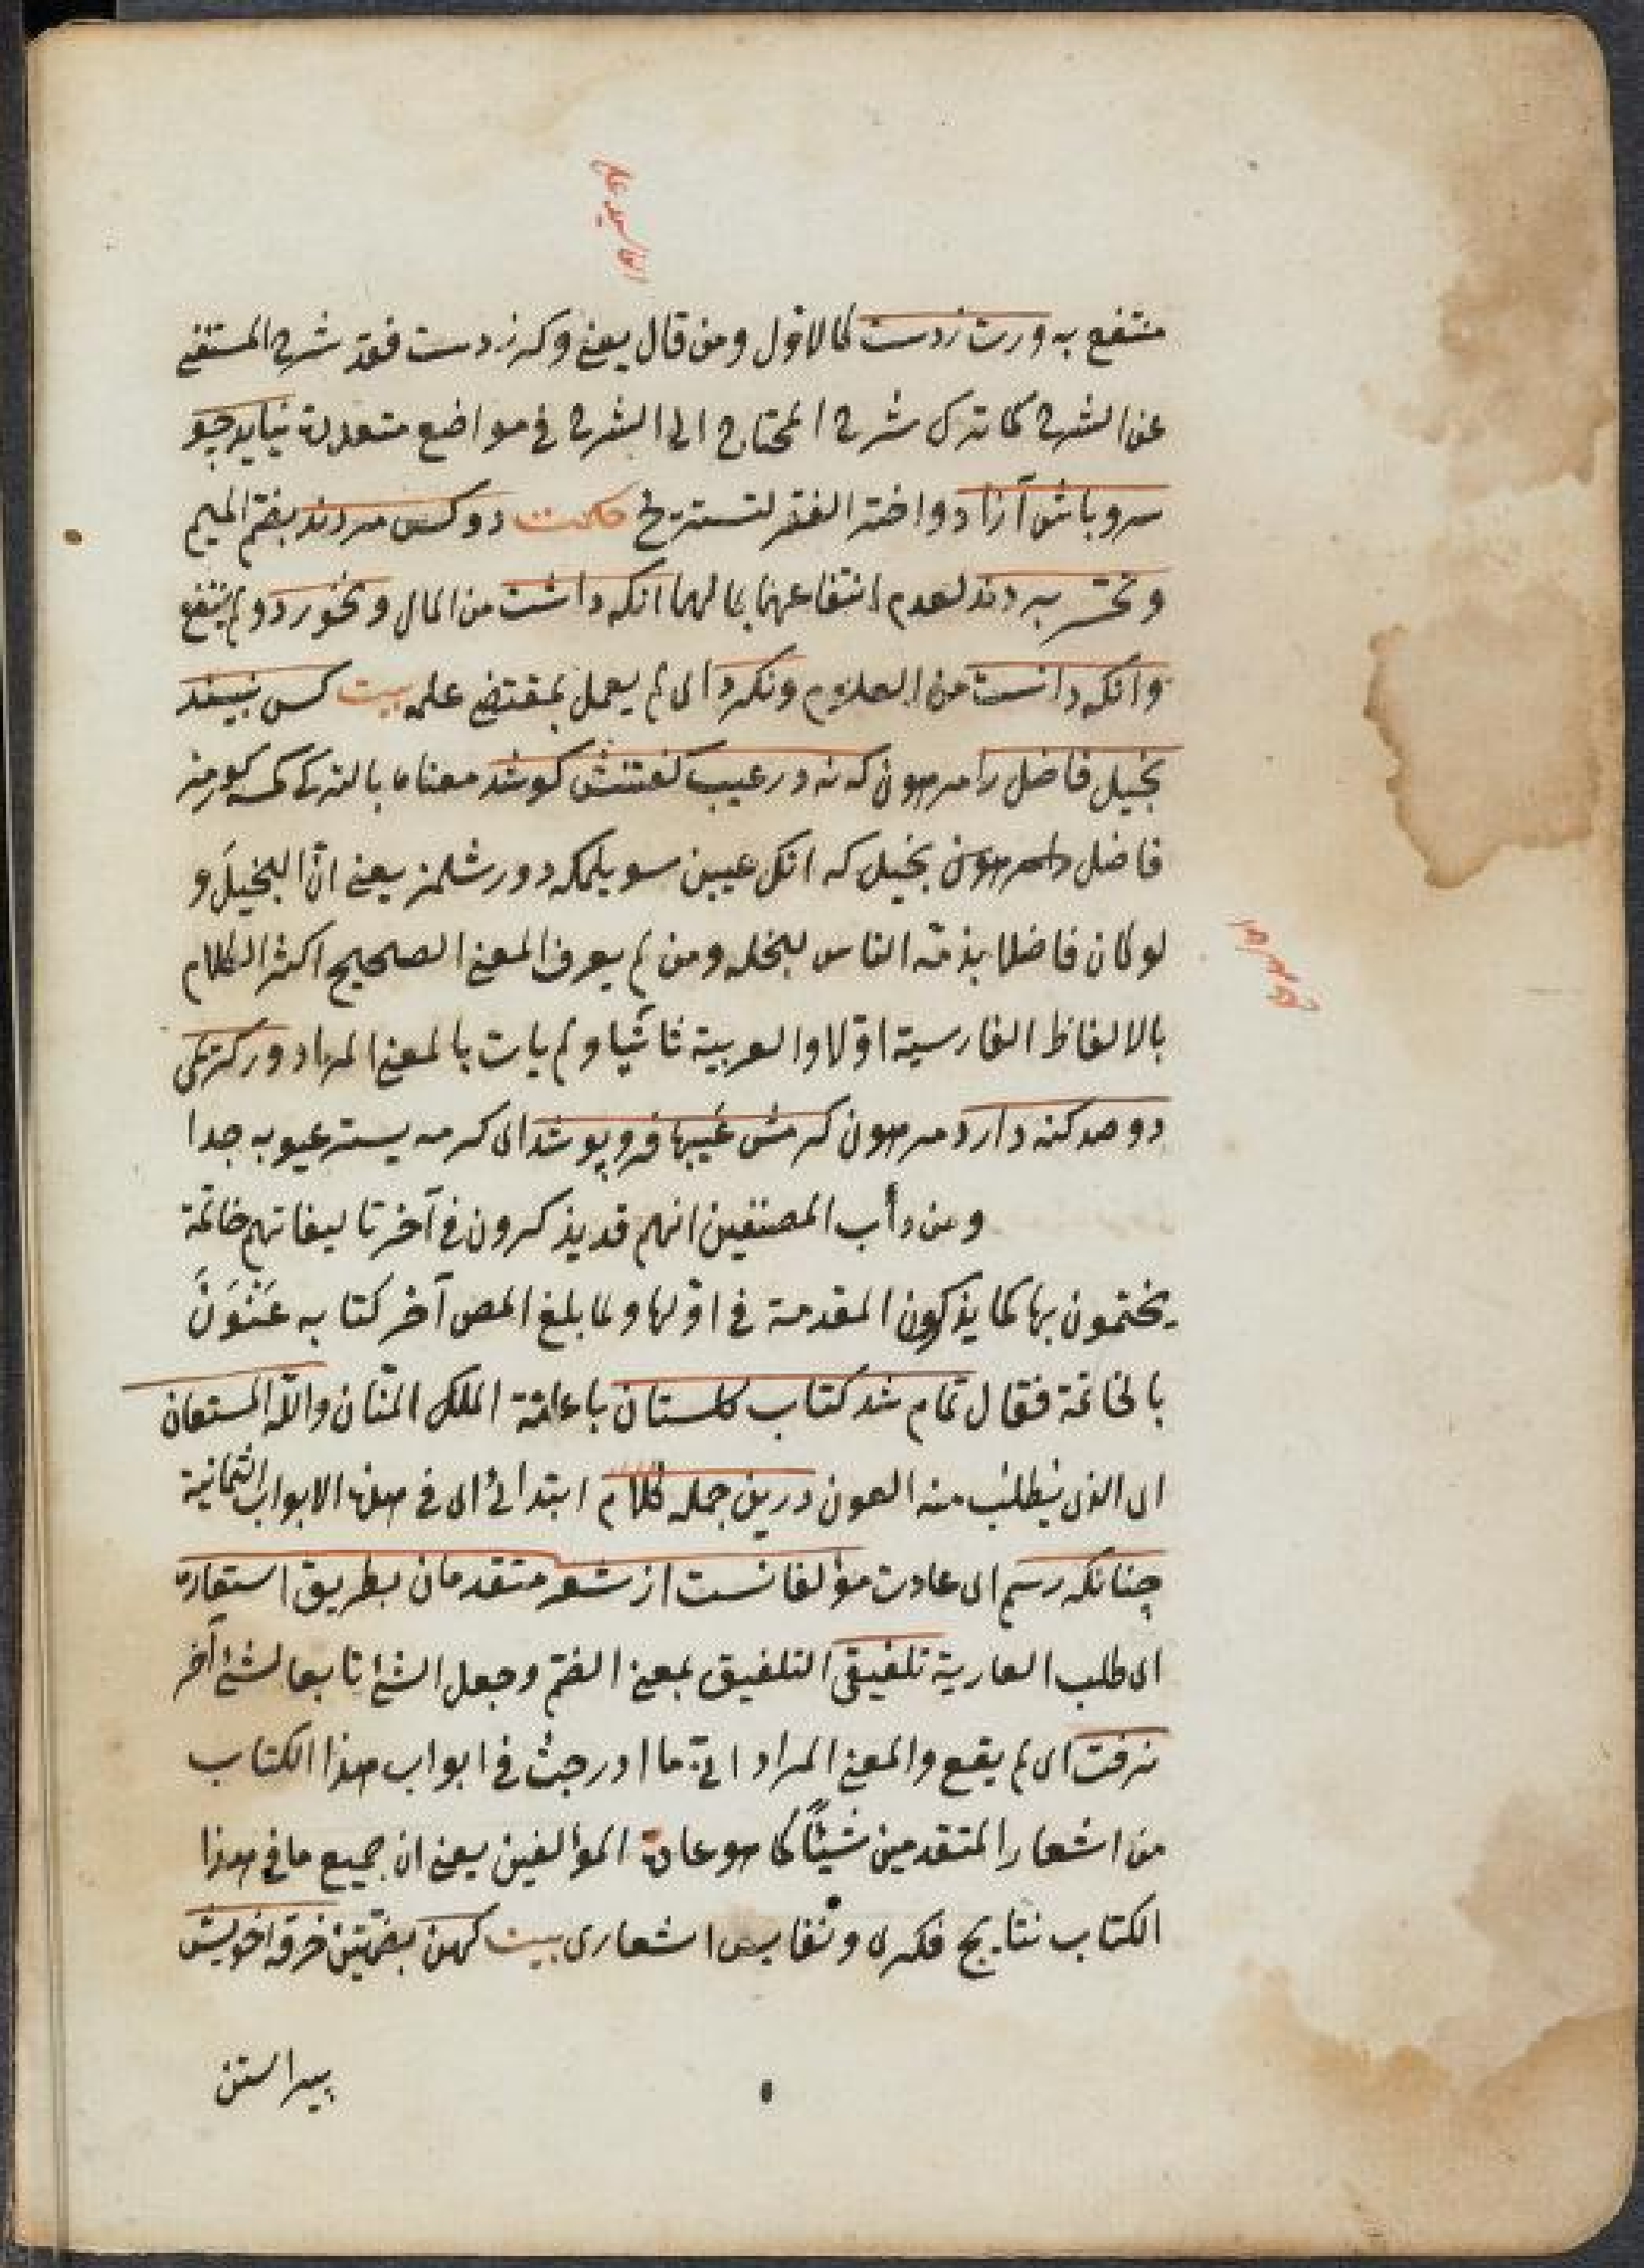 منتفع به ورت ز دست كالاول ومن قال يعنى وكر ز دست فقد شرح المستغنى
عن الشرح كما ترك شرح المحتاج الى الشرح فى مواضع متعددة نيايد چو
سرو باش آزاد واختر الفقر لتستريح حكمت دو كس مردند بضم الميم
وتحسر بردند لعدم انتفاعهما بمالهما آنكه داشت من المال ونخورد ولم ينتفع
وآنكه دانست من العلوم ونكرد اى لم يعمل بمقتضى علمه بيت كس نبيند
بخيل فاضل را هر كه نه در عيب كفتنش كوشد معناه بالتركى كمسه كورمز
فاضل بخيل كه انك عيبن سويلمكه دورشمز يعنى ان البخيل و
لو كان فاضلا يذمه الناس لبخله ومن لم يعرف المعنى الصحيح اكثر الكلام
بالالفاظ الفارسية اولا والعربية ثانيا ولم يات بالمعنى المراد وركريمى
دو صد كنه دارد كرمش عيبها فرو پوشد اى كرمه يستر عيوبه جدا
ومن دأب المصنفين انهم قد يذكرون فى آخر تاليفاتهم خاتمة
يختمون بها كما يذكرون المقدمة فى اولها ولما بلغ المص آخر كتابه عَنْوَنَ
بالخاتمة فقال تمام شد كتاب كلستان باعانة الملك المنّان والله المستعان
اى الذى يطلب منه العون درين جمله كلام ابتدائى اى فى هذه الابواب الثمانية
چنانكه رسم اى عادت مؤلفانست از شعر متقدمان بطريق استعاره
اى طلب العارية تلفيقى التلفيق بمعنى الضم وجعل الشئ تابعا لشئ آخر
نرفت اى لم يقع والمعنى المراد انى ما ادرجت فى ابواب هذا الكتاب
من اشعار المتقدمين شيئًا كما هو عادة المؤلفين يعنى ان جميع ما فى هذا
الكتاب نتايج فكرى ونفايس اشعارى بيت كهن بضمتين خرقه خويش
پيراستن